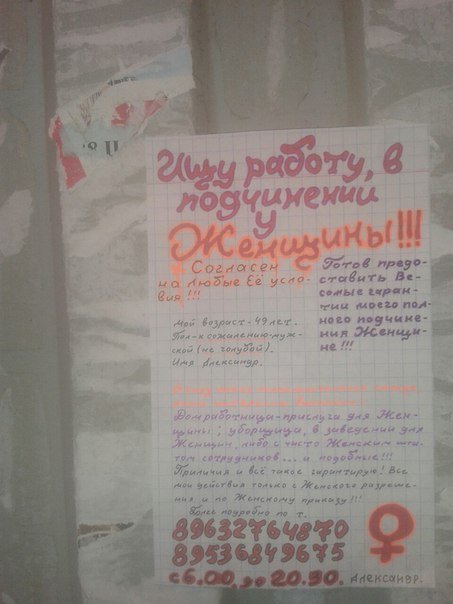 Ищу работу, в
подчинении
у
Женщины!!!
Согласен
на любые Её усло-
вия!!!
Готов предо-
ставить Ве-
сомые гаран-
тии моего пол-
ного подчине-
ния Женщи-
не!!!
Мой возраст - 49 лет.
Пол - к сожалению - муж-
ской (не голубой).
Имя Александр.
Домработница-прислуга для Жен-
щины; уборщица, в заведении для
Женщин, либо с чисто Женским шта-
том сотрудников... и подобные!!!
Приличия и всё такое гарантирую! Все
мои действия только с Женского разреше-
ния и по Женскому приказу!!!
Более подробно по т.
89632764870
89536849675
с 6.00. до 20.30. Александр.